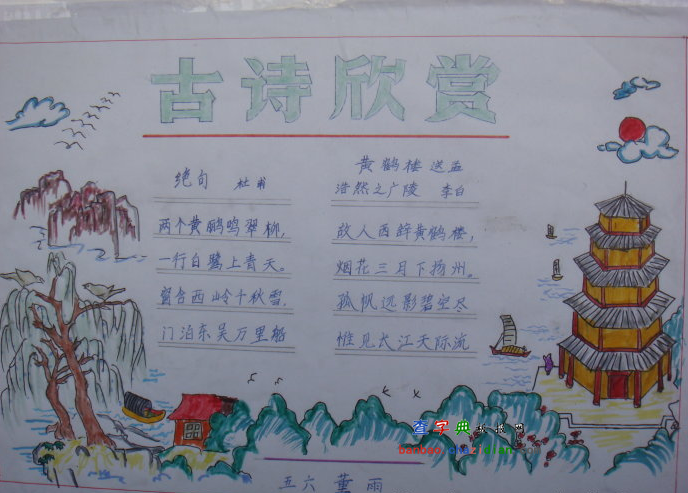 古诗欣赏
绝句 杜甫
两个黄鹂鸣翠柳,
一行白鹭上青天。
窗含西岭千秋雪,
门泊东吴万里船
黄鹤楼送孟
浩然之广陵 李白
故人西辞黄鹤楼,
烟花三月下扬州。
孤帆远影碧空尽
惟见长江天际流
查字典
五六 董雨